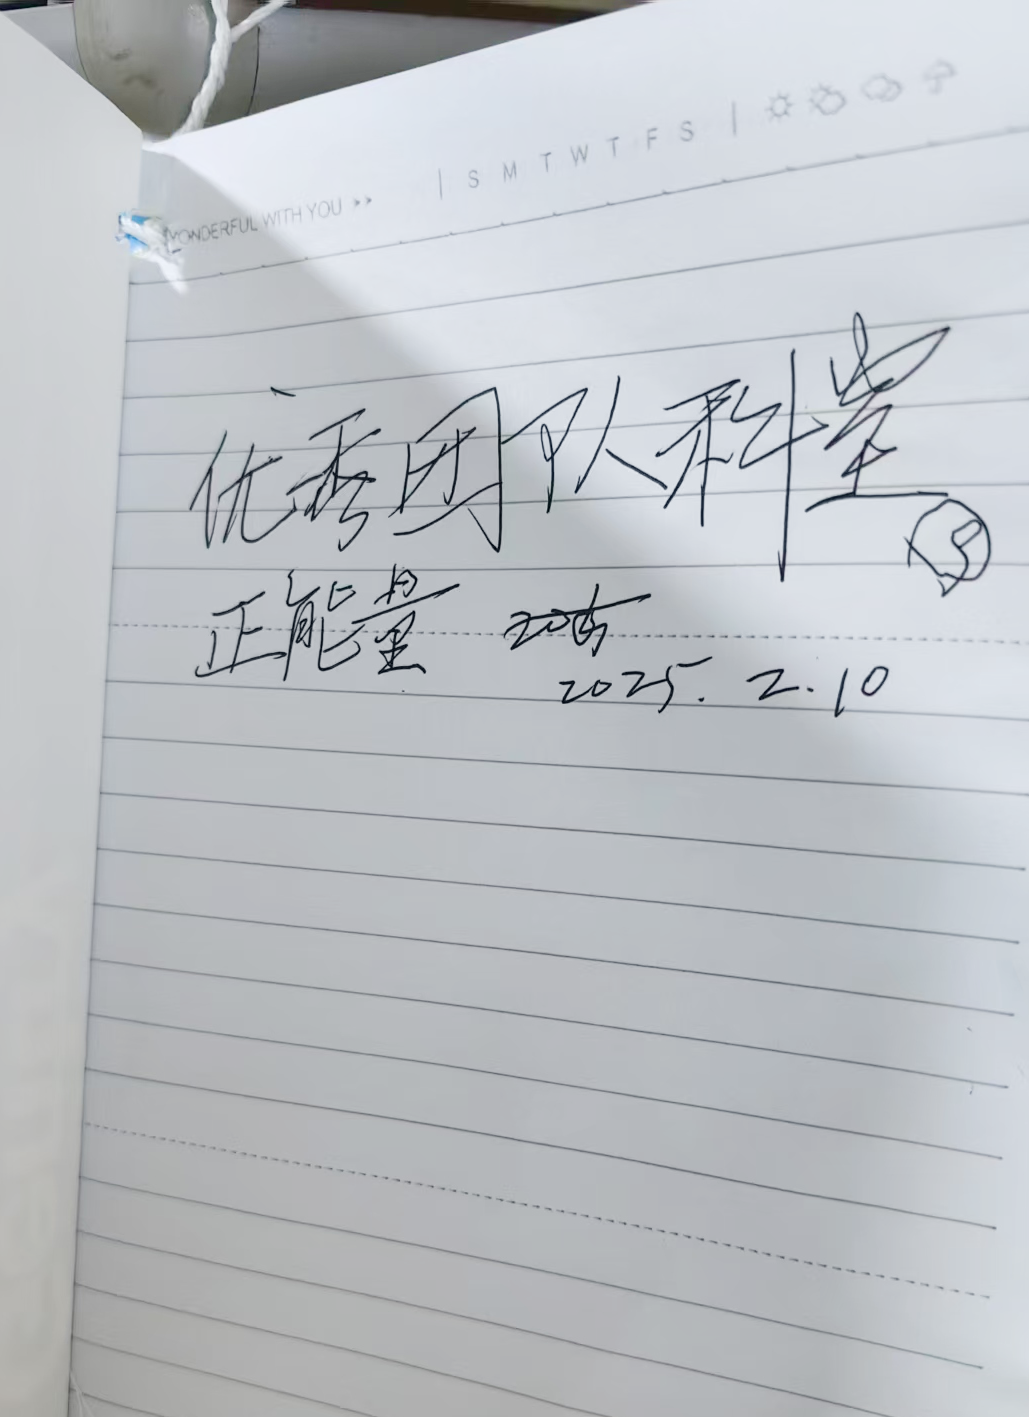 WONDERFUL WITH YOU >> | S M T W T F S |
优秀团队科室
正能量
2025. 2. 10